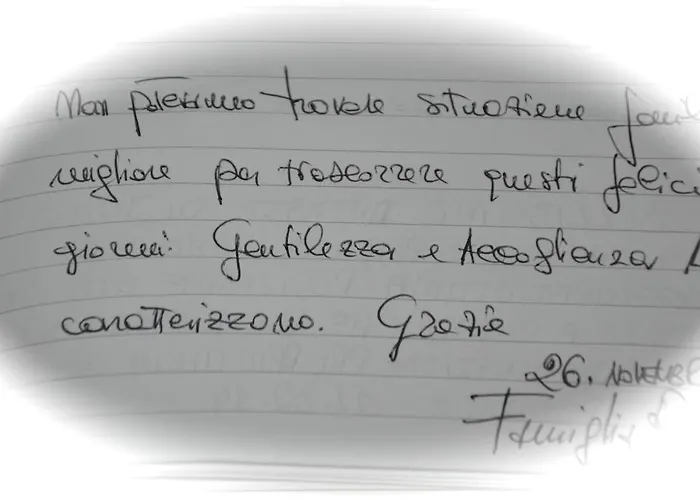 Non potevamo trovare situazione
migliore per trascorrere questi felici
giorni. Gentilezza e Accoglienza
caratterizzano. Grazie
26. NOVEMB
Famiglia